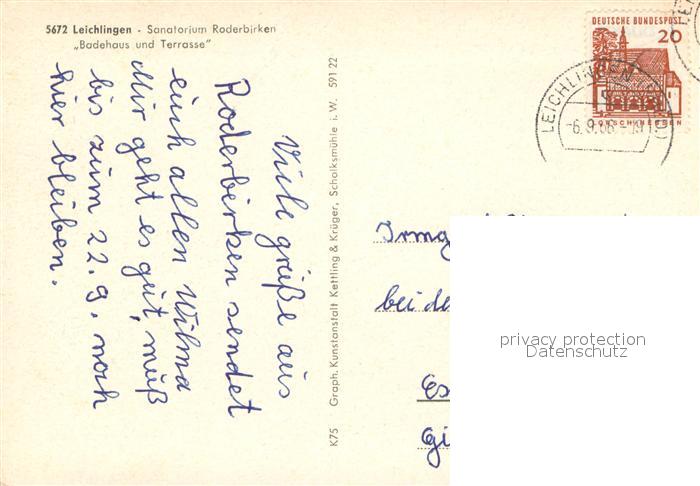 5672 Leichlingen - Sanatorium Roderbirken
„Badehaus und Terrasse"
Viele grüße aus
Roderbirken sendet
euch allen Wilma
Mir geht es gut, muß
bis zum 22.9. noch
hier bleiben.
K75 Graph. Kunstanstalt Kettling & Krüger, Schalksmühle i. W. 591 22
DEUTSCHE BUNDESPOST
20
LORSCH/HESSEN
LEICHLINGEN
-6.9.66-
Irmg
bei de
Es
Gi
privacy protection
Datenschutz